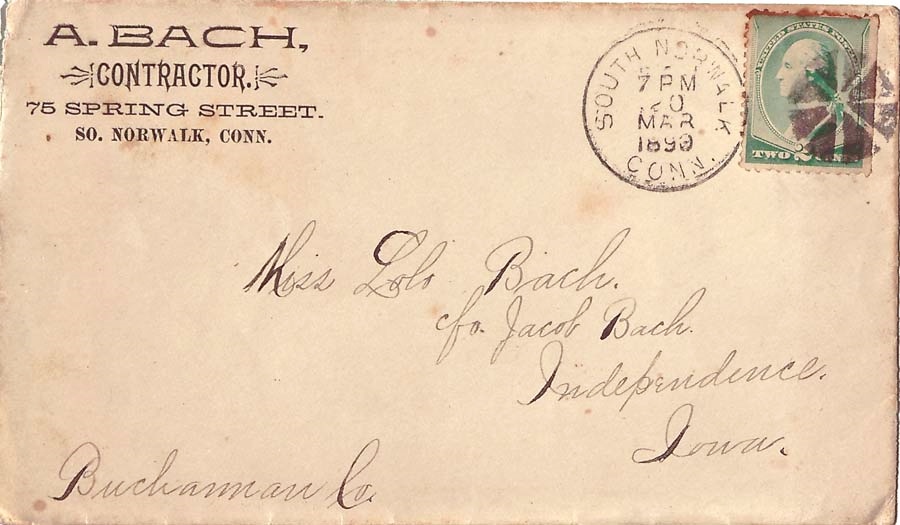 A. BACH,
CONTRACTOR.
75 SPRING STREET.
SO. NORWALK, CONN.
SOUTH NORWALK
7 PM
20
MAR
1890
CONN.
UNITED STATES POSTAGE
TWO 2 CENTS
Miss Lolo Bach.
c/o. Jacob Bach.
Independence.
Iowa.
Buchannan Co.